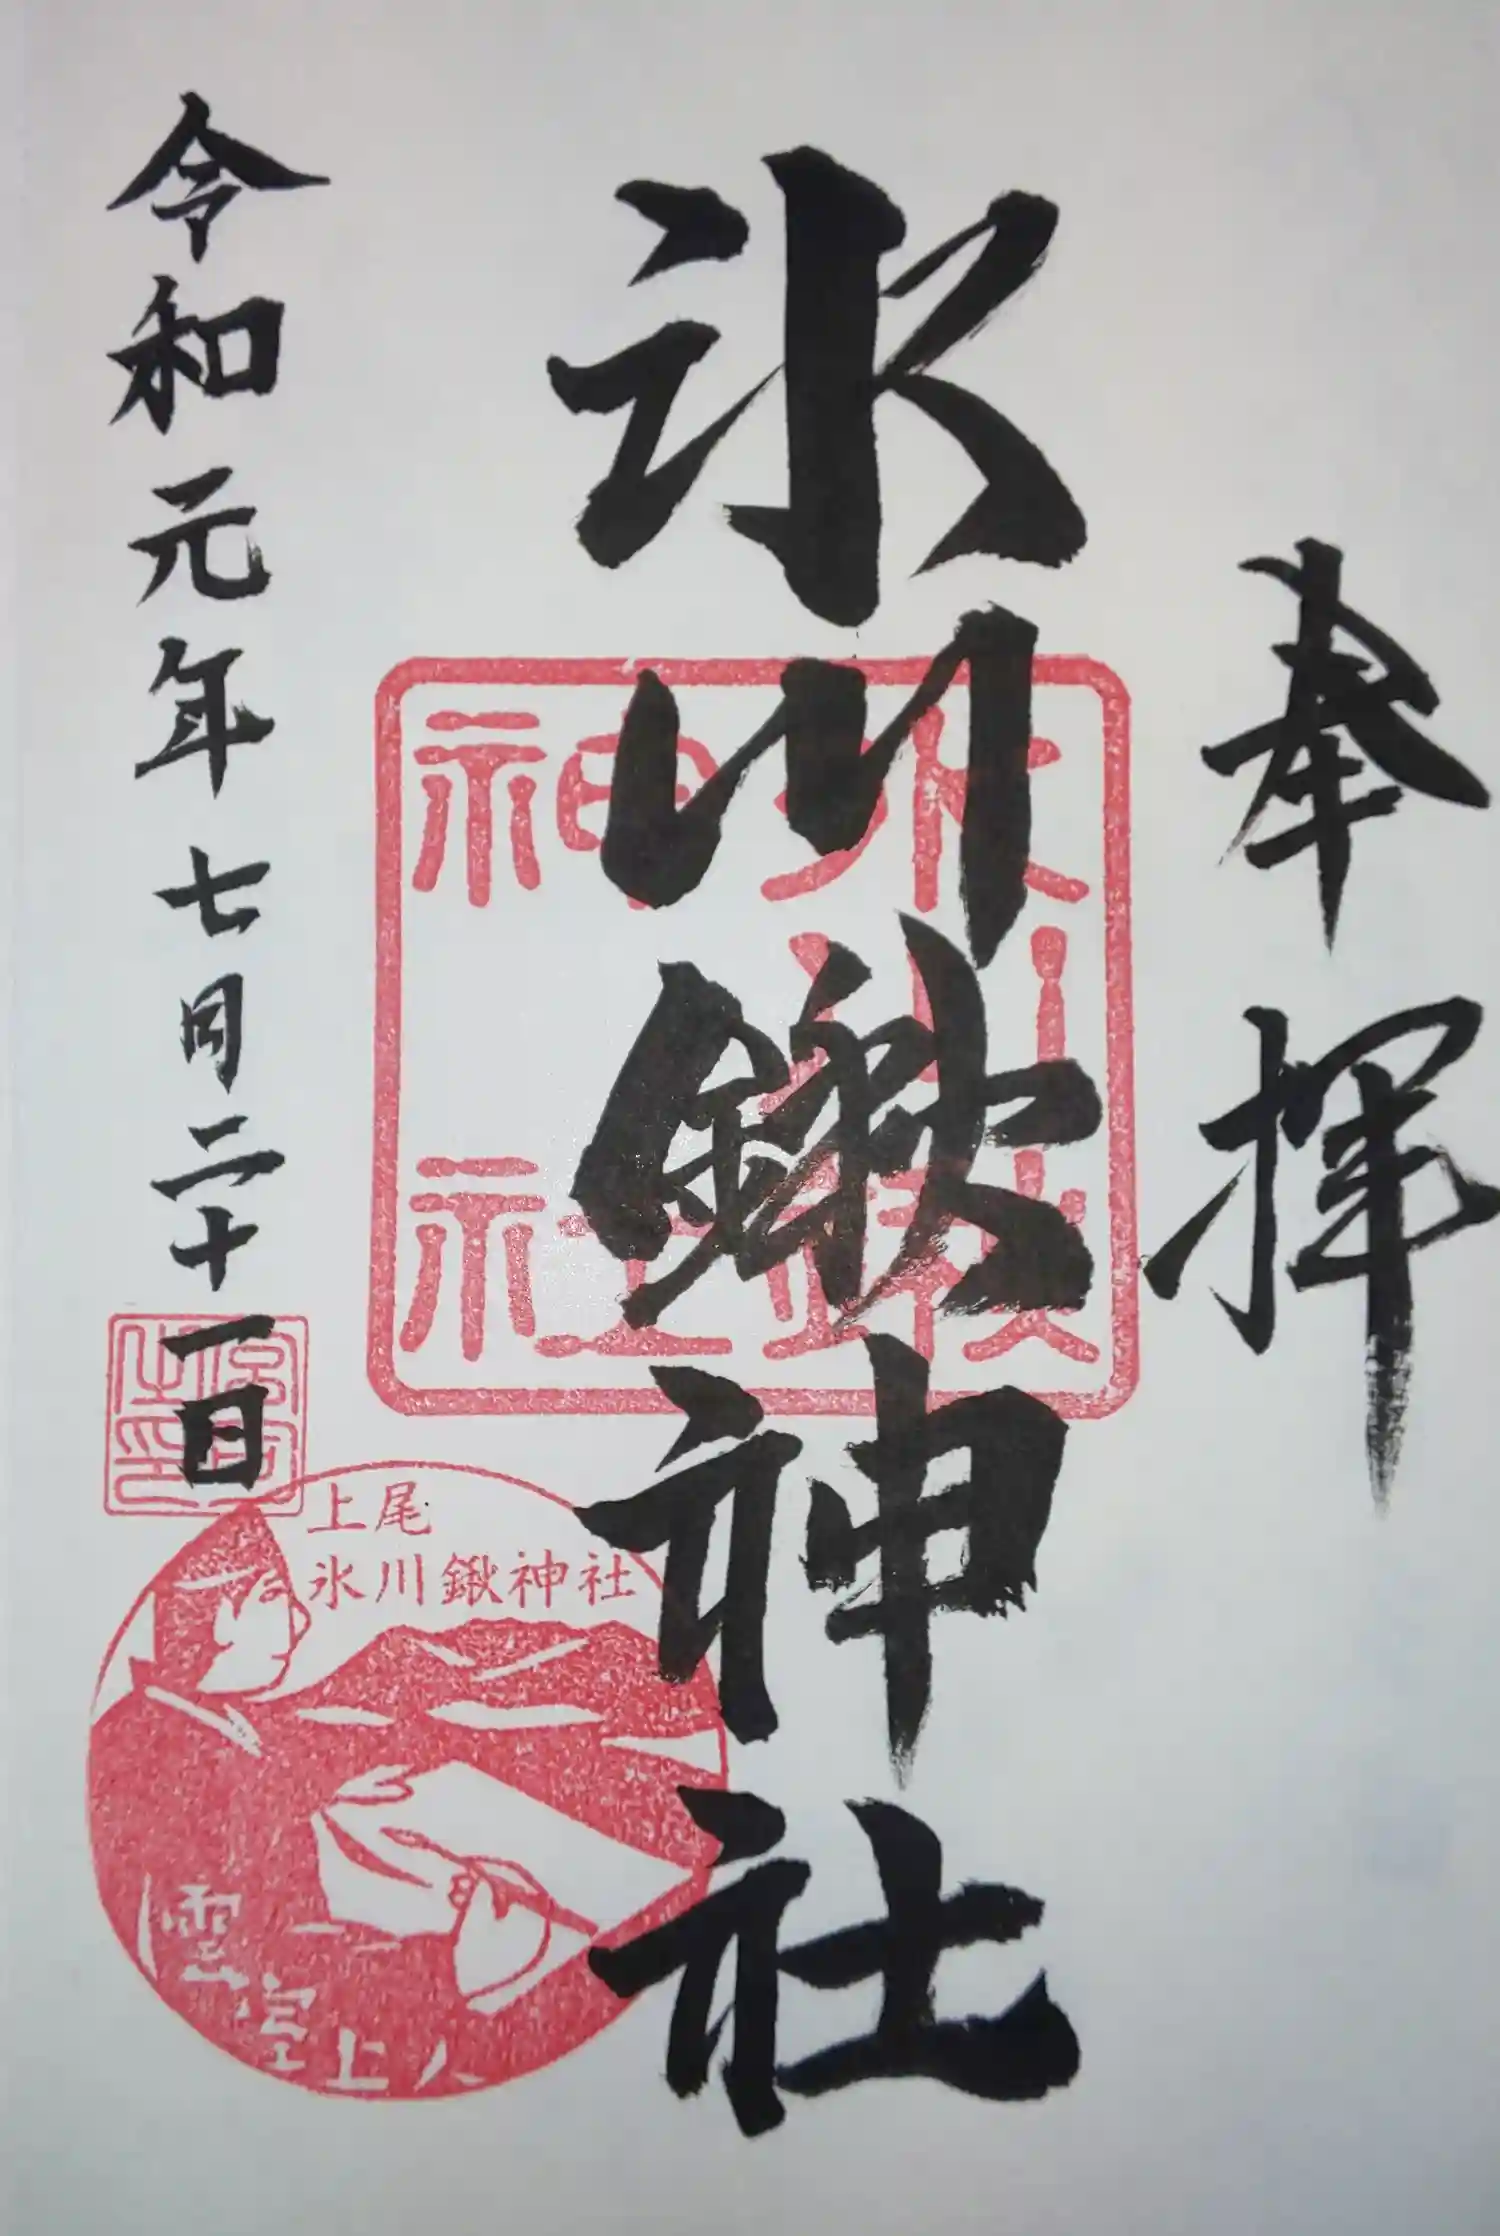 奉拝
氷川鍬神社
氷川
鍬
神
社
令和元年七月二十一日
上尾
氷川鍬神社
雲室上人